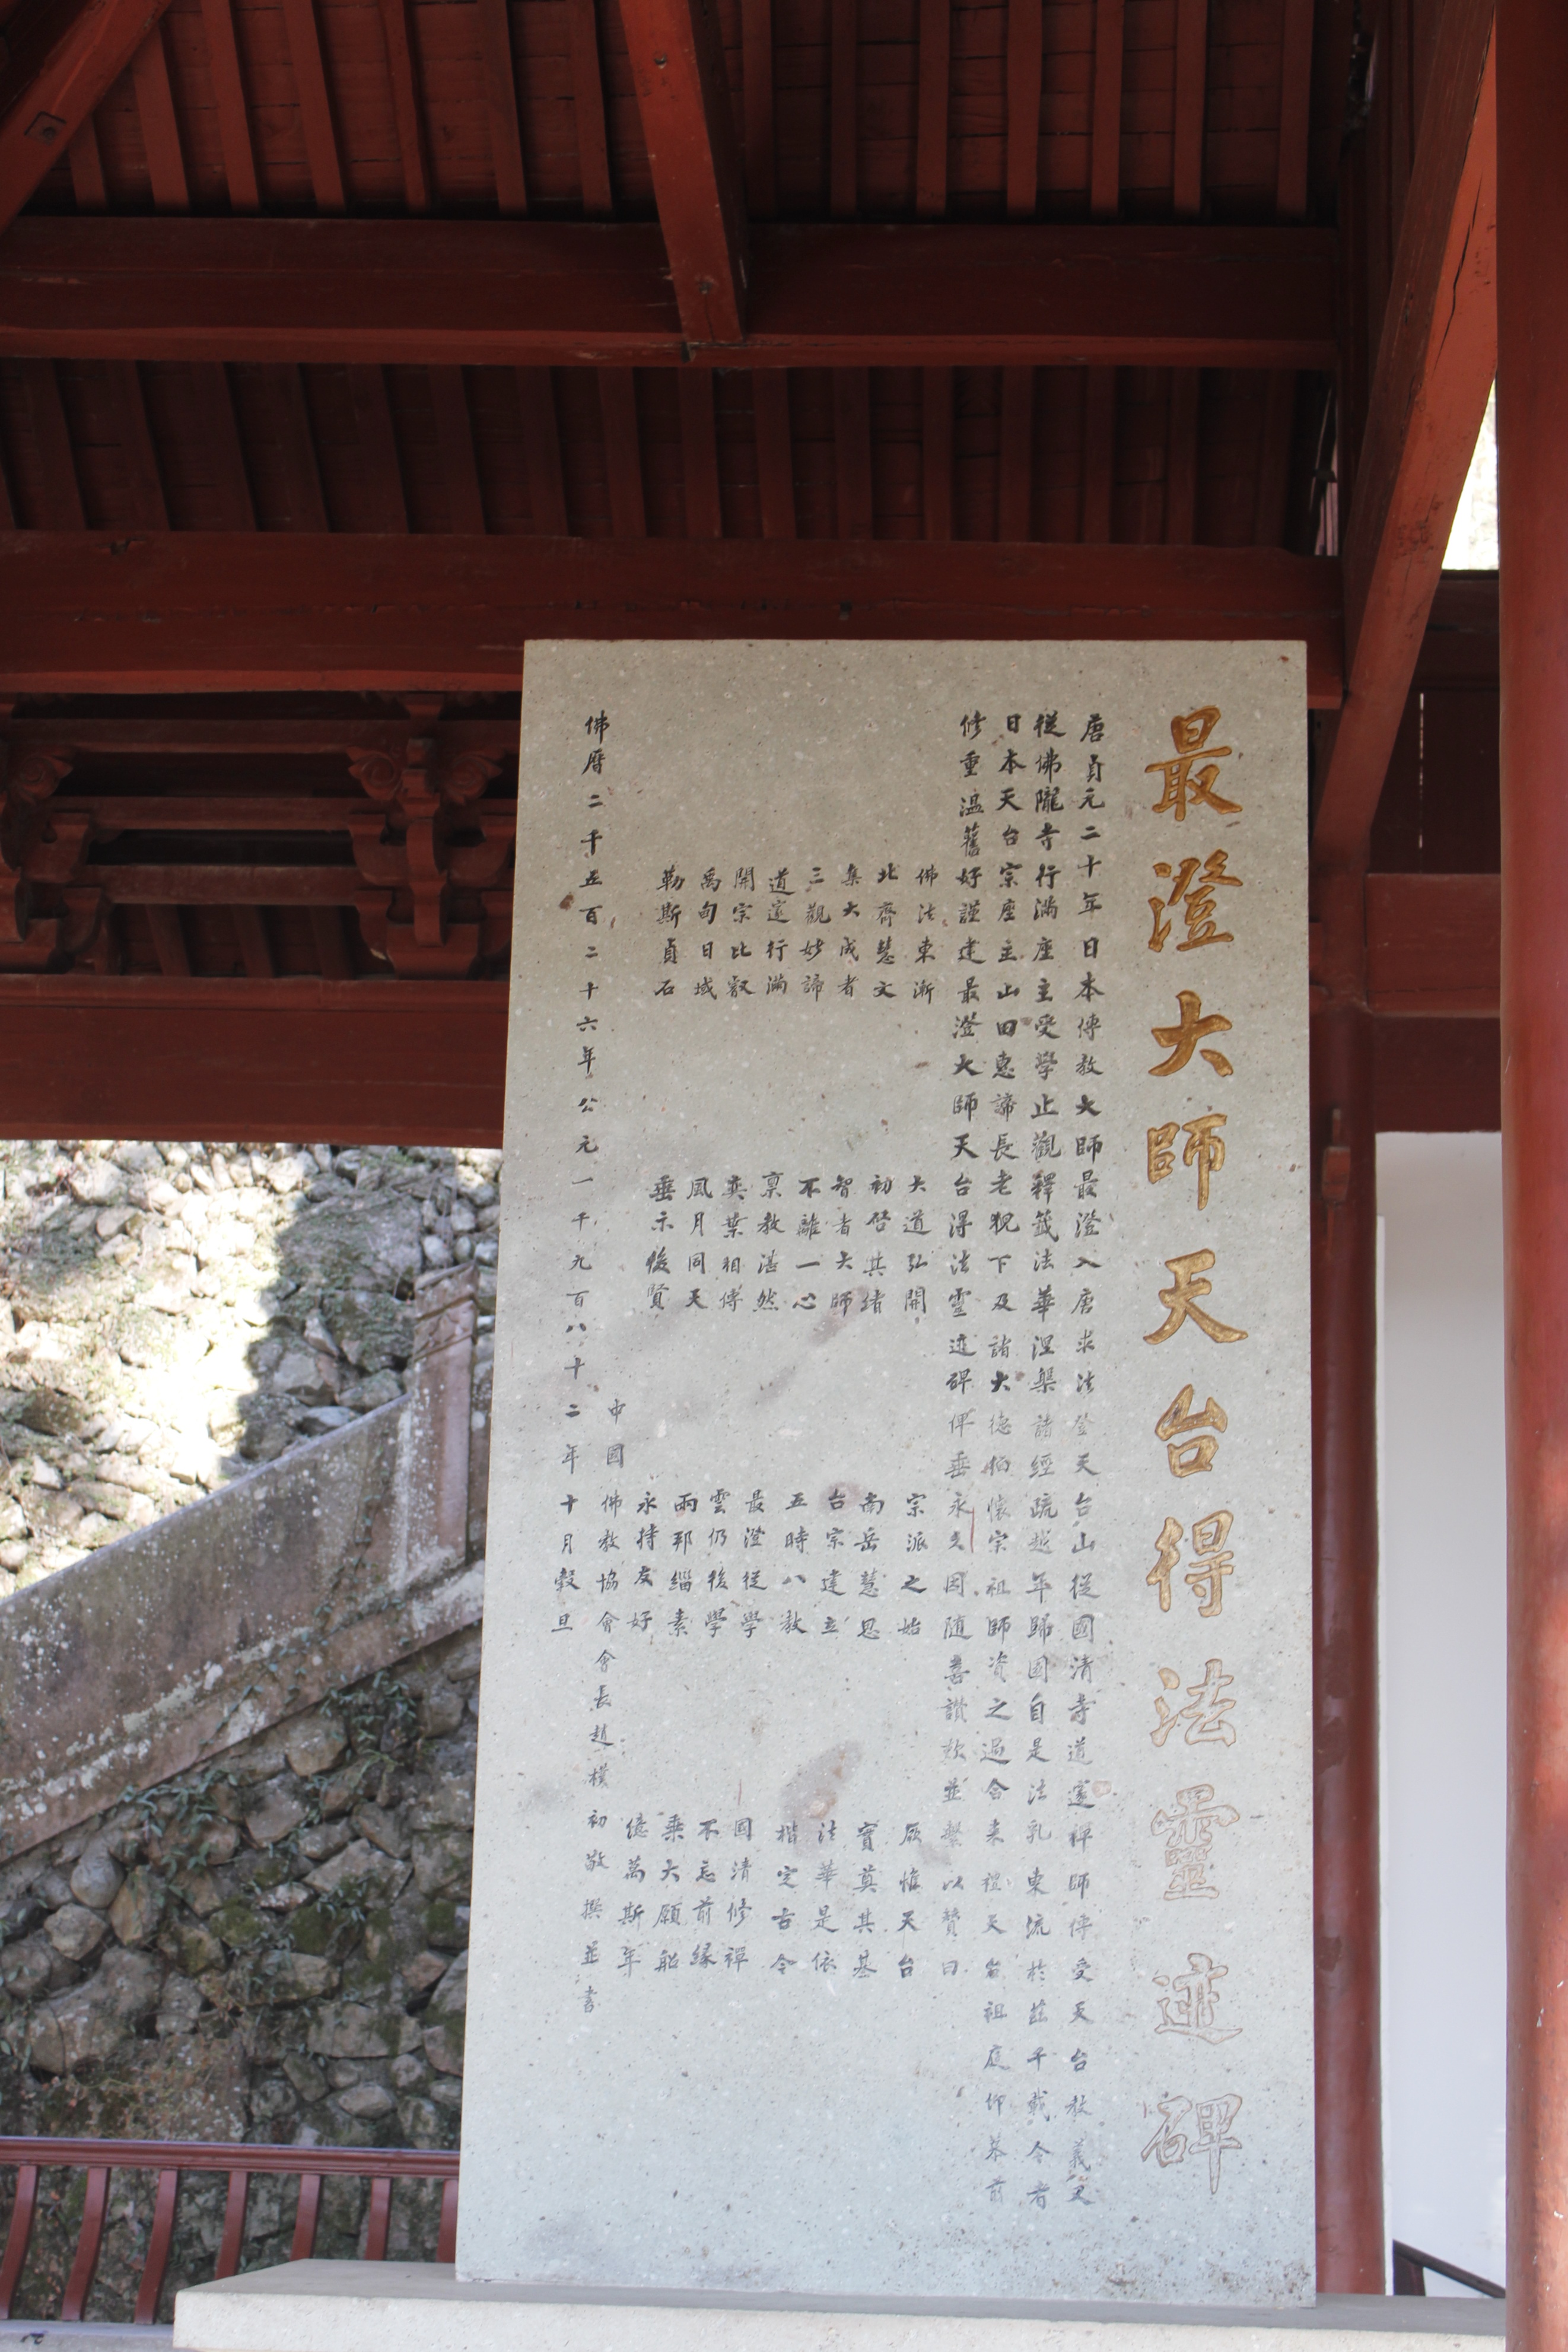 最澄大師天台得法靈迹碑
唐貞元二十年日本傳教大師最澄入唐求法登天台山從國清寺道邃禪師傳受天台教義又
從佛隴寺行滿座主受學止觀釋籤法華涅槃諸經疏越年歸國自是法乳東流於茲千載今者
日本天台宗座主山田惠諦長老猊下及諸大德緬懷宗祖師資之遇合來禮天台祖庭仰慕前
修重溫舊好謹建最澄大師天台得法靈迹碑俾垂永久因随喜讚歎並繫以贊曰
佛法東漸 大道弘開 宗派之始 厥惟天台
北齊慧文 初啓其緒 南岳慧思 實奠其基
集大成者 智者大師 台宗建立 法華是依
三觀妙諦 不離一心 五時八教 楷定古今
道邃行滿 稟教湛然 最澄從學 國清修禪
開宗比叡 奕葉相傳 雲仍後學 不忘前緣
禹甸日域 風月同天 兩邦緇素 乘大願船
勒斯貞石 垂示後賢 永持友好 億萬斯年
中國佛教協會會長趙樸初敬撰並書
佛曆二千五百二十六年公元一千九百八十二年十月穀旦